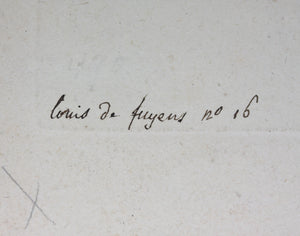 louis de fuyens nº 16